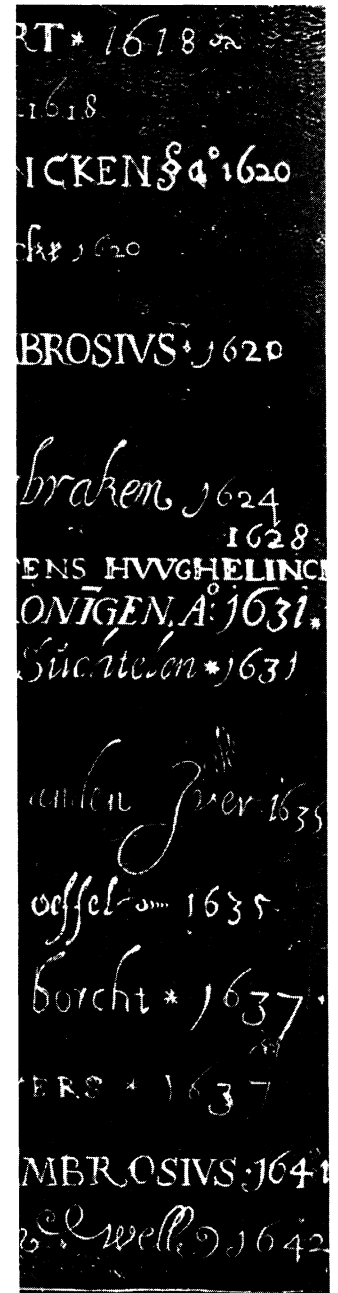 RT * 1618
1618
ICKEN § a° 1620
cke 1620
BROSIVS · 1620
braken 1624
1628
ENS HVVGHELINC
ONĪGEN, A°: 1631 *
Sŭchtelen * 1631
anden 1635
oeffel 1635
borcht * 1637 ·
ERS * 1637
MBROSIVS · 1641
well 1642